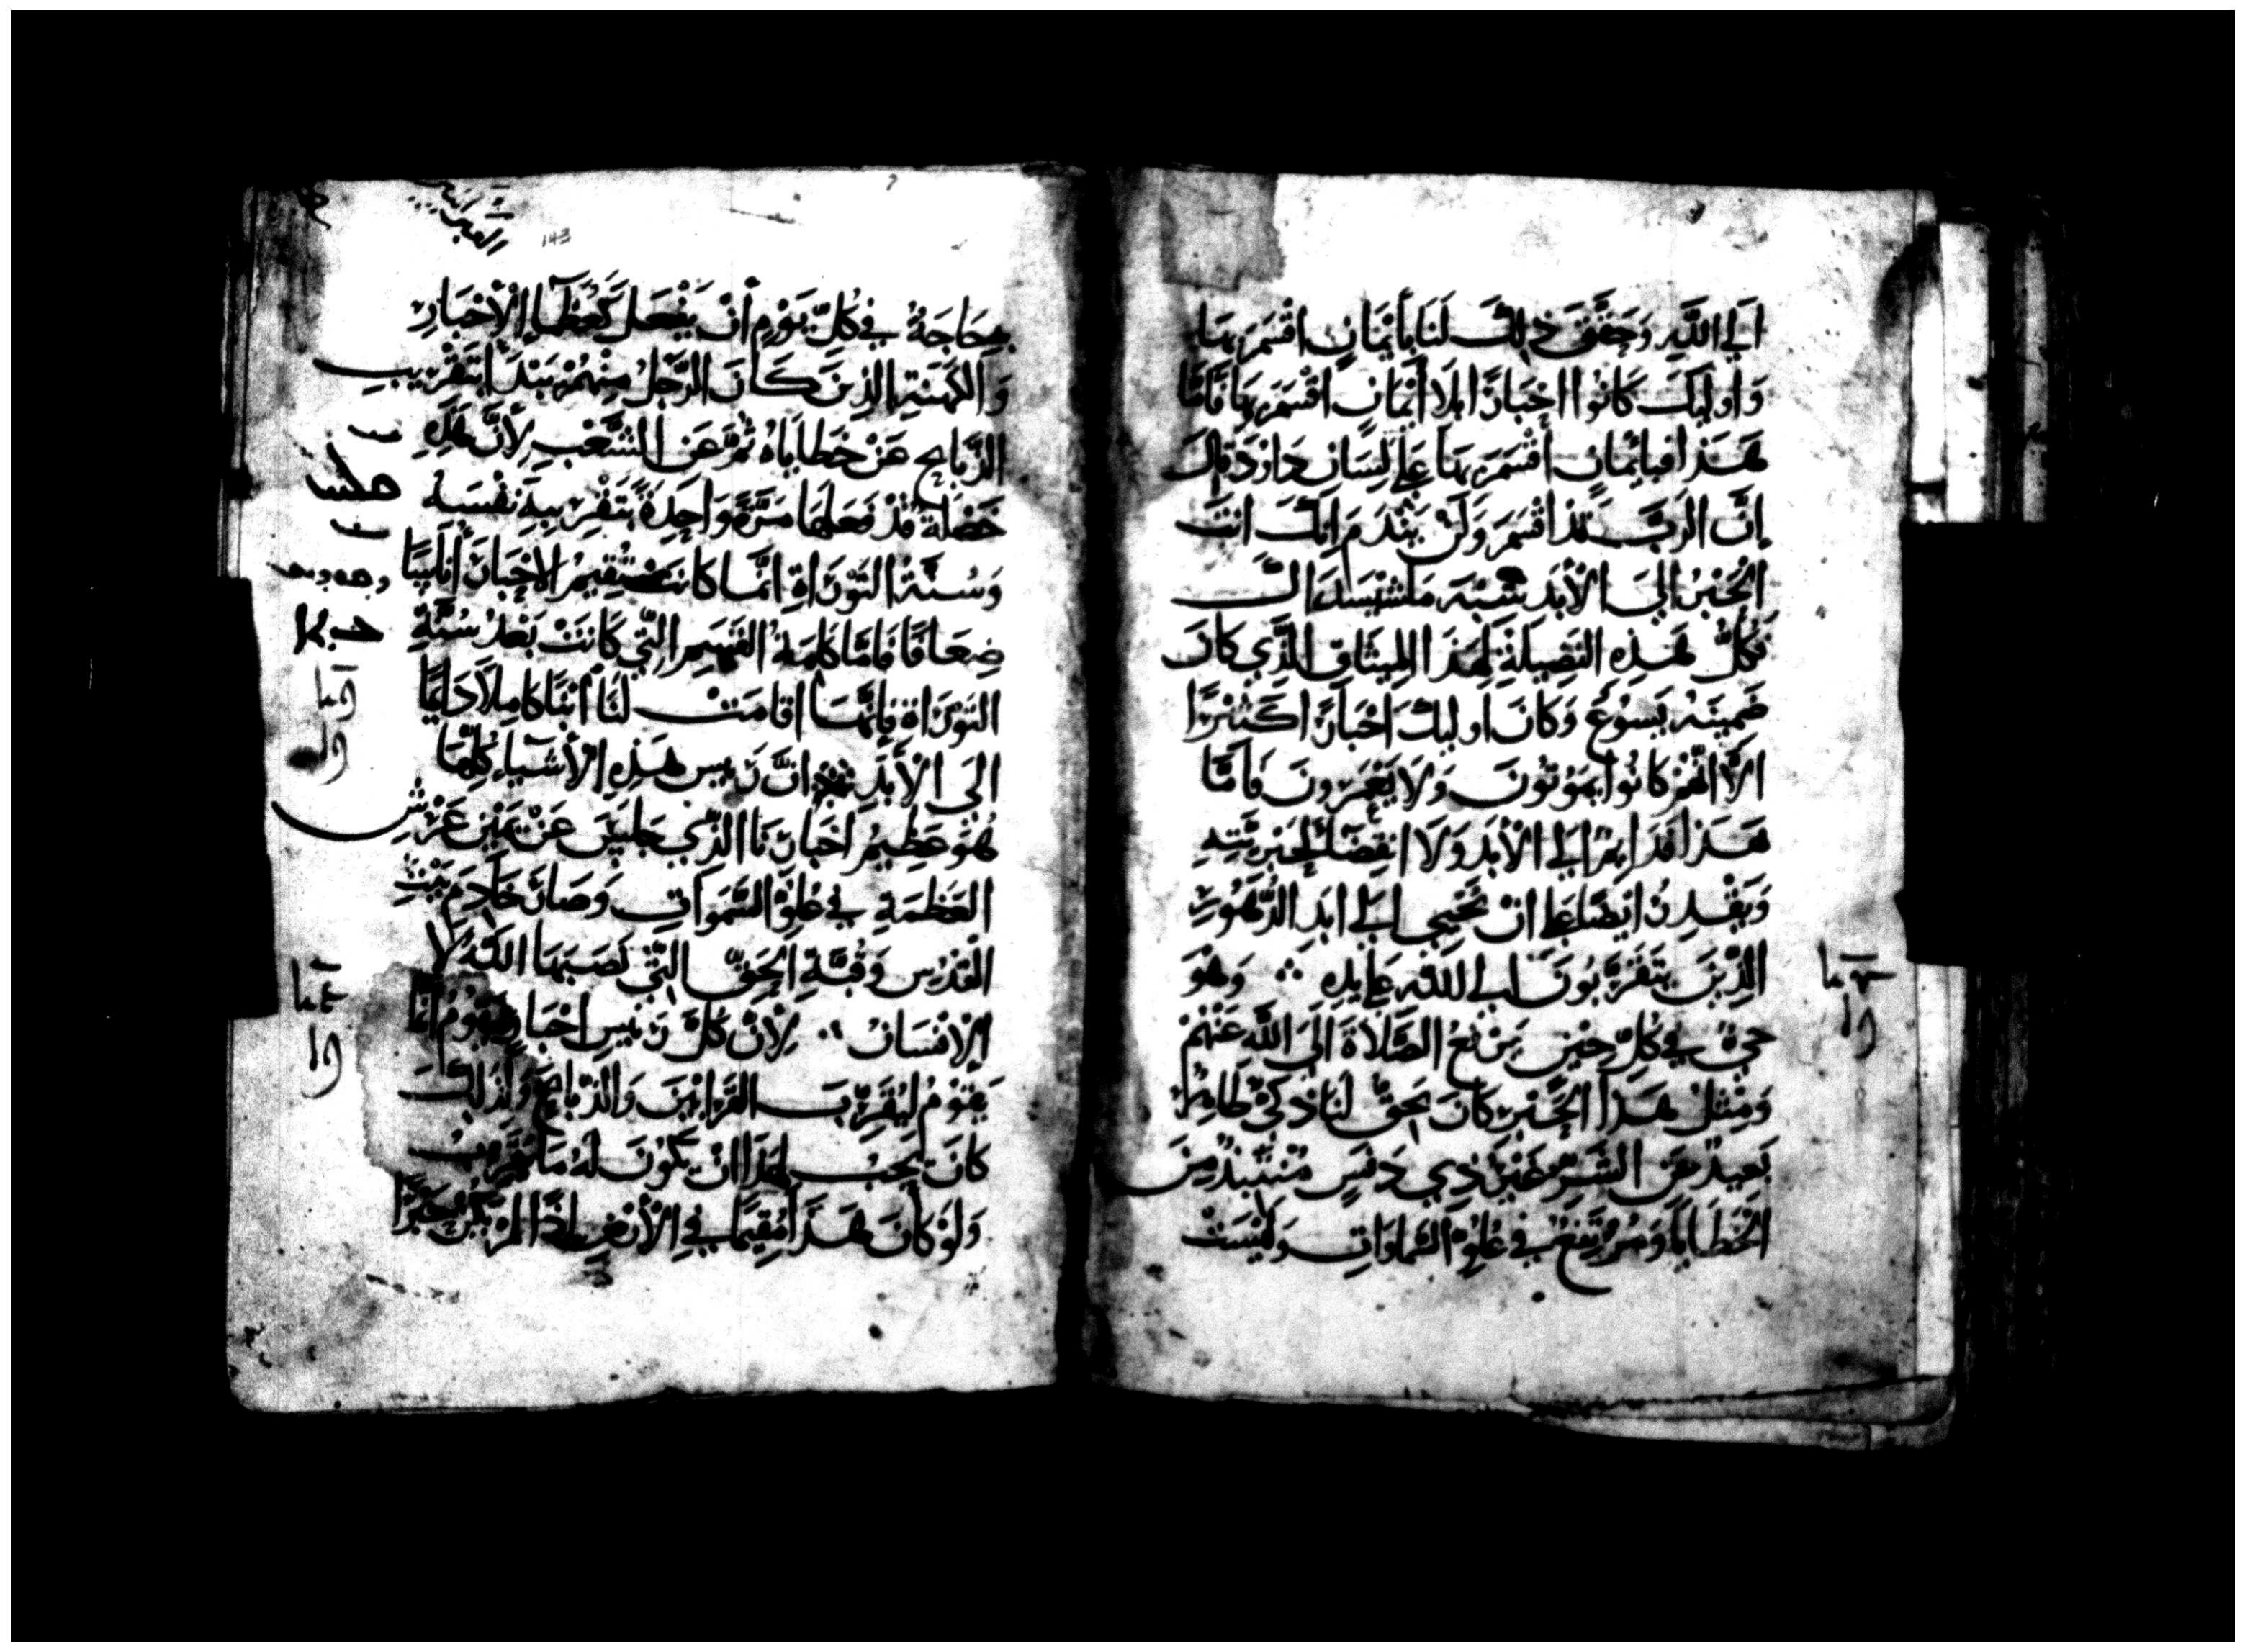 الي الله وحقق ذلك لنا بأيمان اقسم بها
واوليك كانوا احبارًا بلا أيمان اقسم بها فامّا
هذا فبايمان اقسم بها علي لسان داود قال
إن الرب قد اقسم ولن يندم انك انت
الحبر الي الأبد شبه ملشيسداق
فكل هذه الفضيلة لهذا الميثاق الذي كان
ضمينه يسوع وكان اوليك احبارًا كثيرًا
الا انهم كانوا يموتون ولا يعمرون فامّا
هذا فدايم الي الأبد ولا انقضا لحبريته
ويقدر ايضًا علي ان يحيي الي ابد الدهور
الذين يتقربون الي الله علي يديه ∴ وهو
حي في كل حين يرفع الصلاة الي الله عنهم
ومثل هذا الحبر كان يحق لنا ذكي طاهر
بعيد من الشر غير ذي دنس متنبذ من
الخطايا ومرتفع في علو السماوات وليست
العبرانيين
143
به حاجة في كل يوم أن يفعل كعظما الأحبار
والكهنة الذين كان الرجل منهم يبتدأ بتقريب
الذبايح عن خطاياه ثم عن الشعب لأن هذه
خصلة قد فعلها مرة واحدة بتقريبه نفسه
وسنة التوراة انما كانت تقيم الاحبار أناسًا
ضعافًا فامّا كلمة القسم التي كانت بعد سنة
التوراة فانها اقامت لنا ابنًا كاملاً دايمًا
الي الأبد ان ريس هذه الأشياء كلها
هو عظيم احبارنا الذي جلس عن يمين عرش
العظمة في علو السموات وصار خادم بيت
القدس وقبة الحق التي نصبها الله لا
الإنسان لأن كل رييس احبار يقوم انما
يقوم ليقرب القرابين والذبايح ولذلك
كانت يجب لهذا ان يكون له ما يقربه
ولو كان هذا مقيمًا في الأرض اذًا لم يكن حبرًا